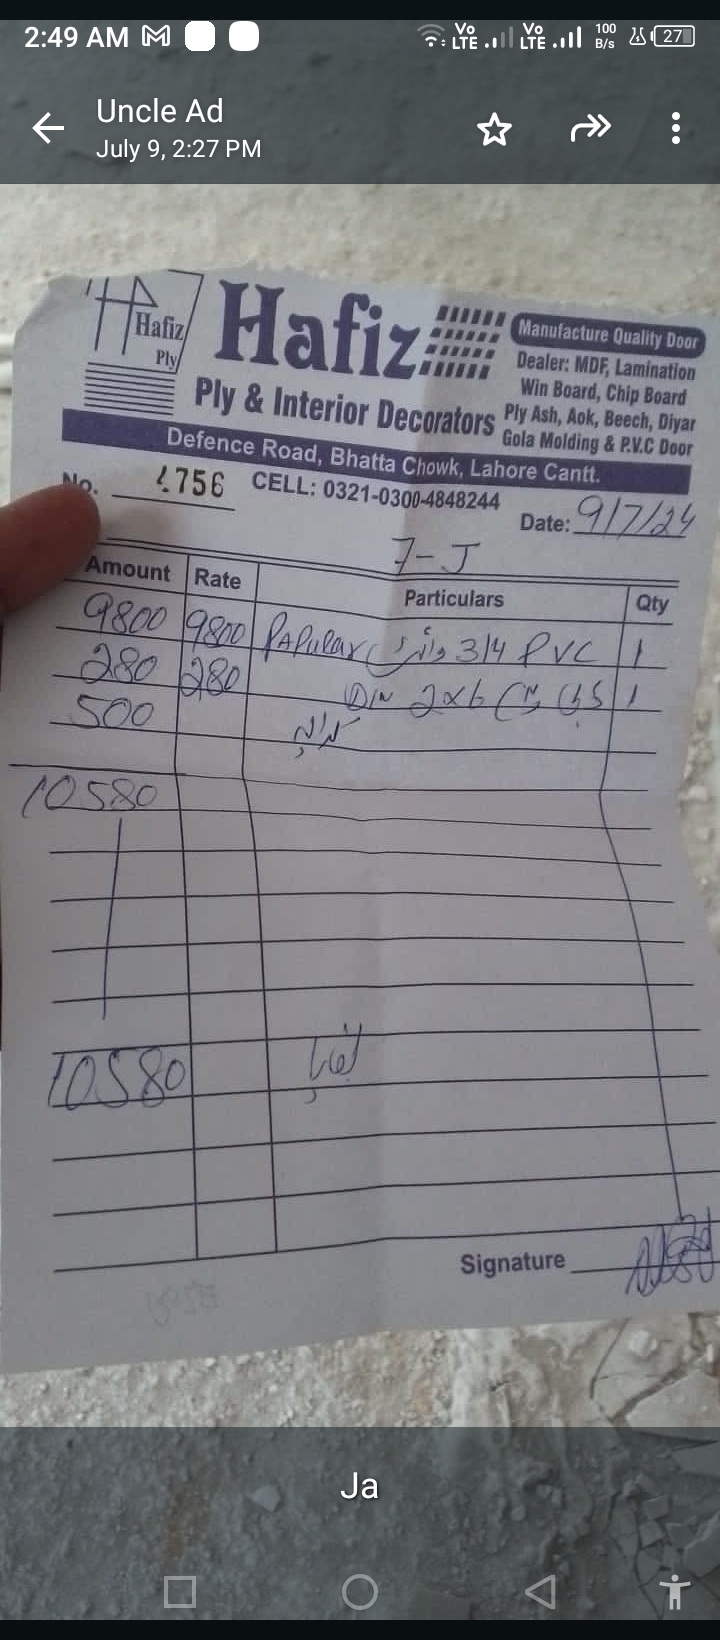 2:49 AM
Vo LTE Vo LTE 100 B/s 27
Uncle Ad
July 9, 2:27 PM
Hafiz Ply
Hafiz
Ply & Interior Decorators
Manufacture Quality Door
Dealer: MDF, Lamination
Win Board, Chip Board
Ply Ash, Aok, Beech, Diyar
Gola Molding & P.V.C Door
Defence Road, Bhatta Chowk, Lahore Cantt.
No. 4756 CELL: 0321-0300-4848244
Date: 9/7/24
7-J
Amount Rate Particulars Qty
9800 9800 Papular 3/4 PVC 1
280 280 2x6 1
500 کرایہ
10580
10580 بقایا
Signature
Ja